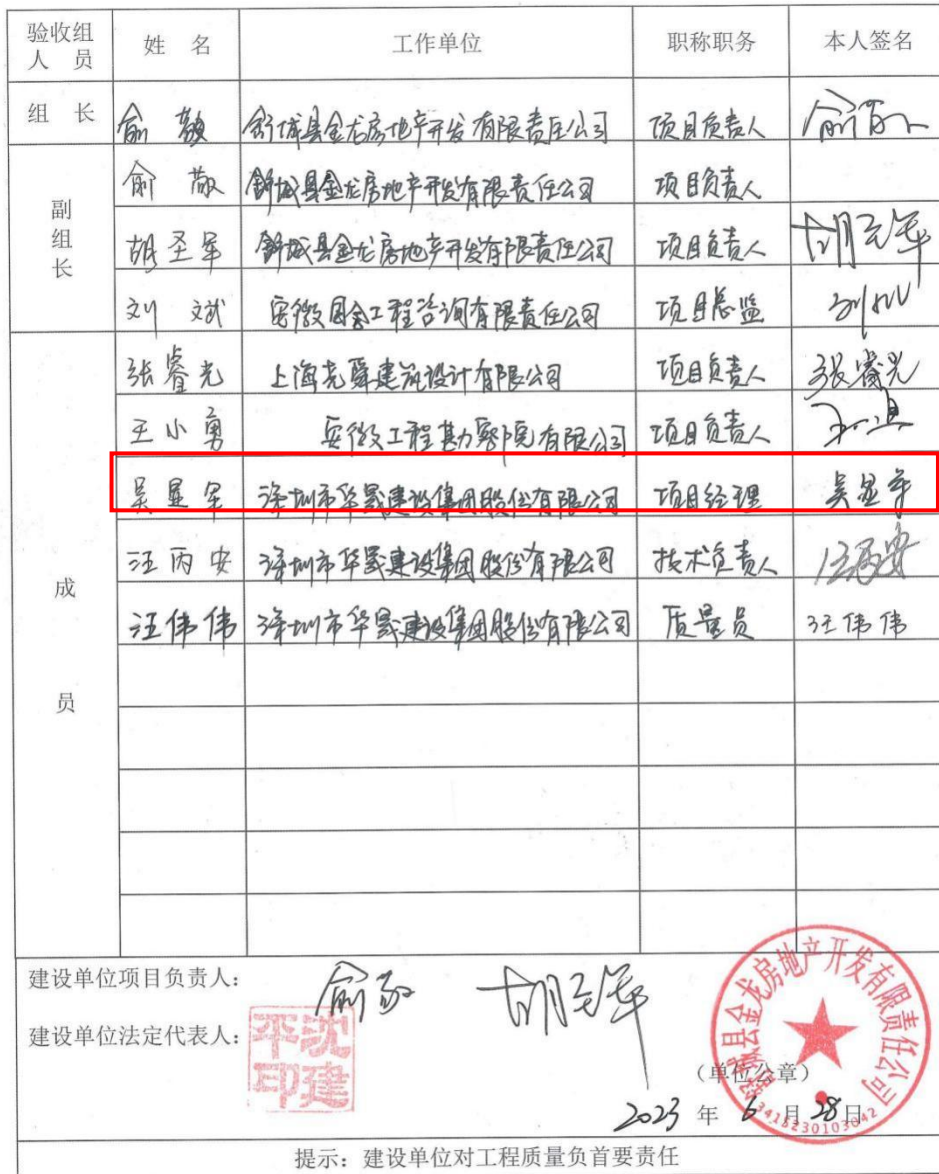 验收组人 员 姓 名 工作单位 职称职务 本人签名
组 长 俞敬 舒城县金龙房地产开发有限责任公司 项目负责人
副组长 俞敬 舒城县金龙房地产开发有限责任公司 项目负责人
胡圣军 舒城县金龙房地产开发有限责任公司 项目负责人 胡圣军
刘斌 安徽国金工程咨询有限责任公司 项目总监
成员 张睿光 上海尧舜建筑设计有限公司 项目负责人 张睿光
王小勇 安徽工程勘察院有限公司 项目负责人
吴显军 深圳市华晟建设集团股份有限公司 项目经理 吴显军
汪丙安 深圳市华晟建设集团股份有限公司 技术负责人 汪丙安
汪伟伟 深圳市华晟建设集团股份有限公司 质量员 汪伟伟
建设单位项目负责人： 俞敬 胡圣军
建设单位法定代表人： 沈建平印
舒城县金龙房地产开发有限责任公司
（单位公章）
3415230103042
2023 年 6 月 28 日
提示：建设单位对工程质量负首要责任